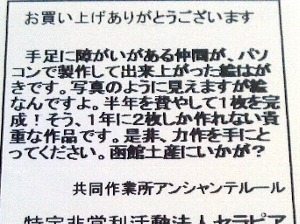 お買い上げありがとうございます
手足に障がいがある仲間が、パソ
コンで製作して出来上がった絵はが
きです。写真のように見えますが絵
なんですよ。半年を費やして1枚を完
成！そう、1年に2枚しか作れない貴
重な作品です。是非、力作を手にと
ってください。函館土産にいかが？
共同作業所アンシャンテルール
特定非営利活動法人セラピア